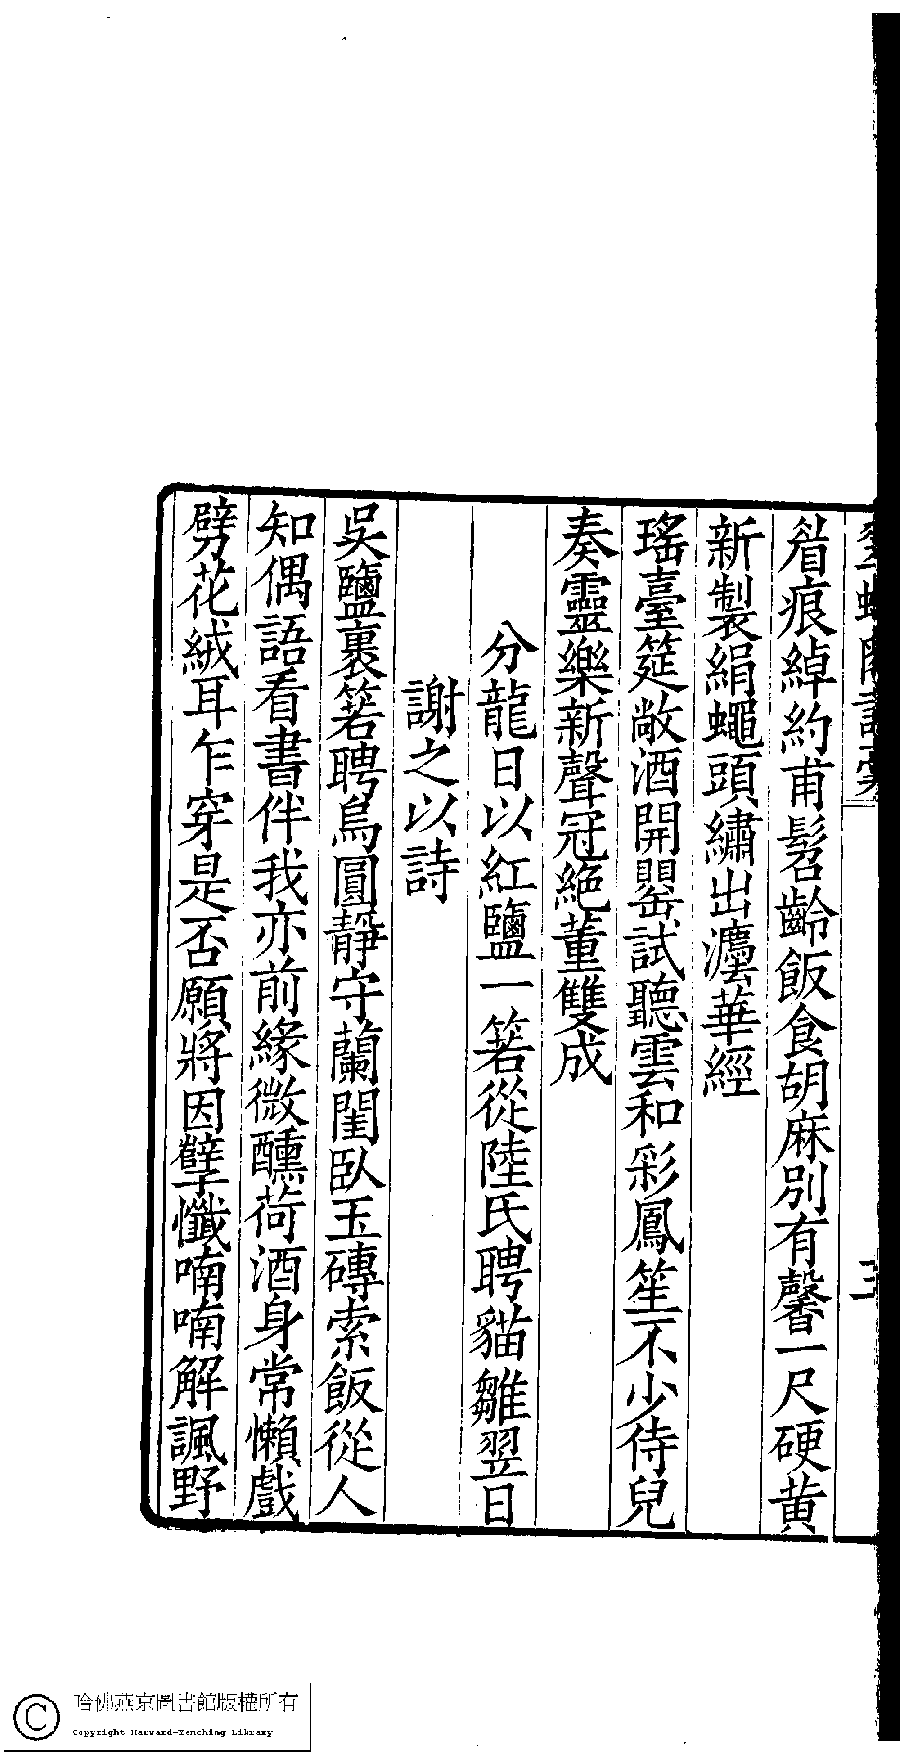 眉痕綽約甫髫齡飯食胡麻別有馨一尺硬黄
新製絹蠅頭繡出灋華經
瑤臺筵敞酒開罌試聽雲和彩鳳笙不少侍兒
奏靈樂新聲冠絶董雙成
分龍日以紅鹽一箬從陸氏聘貓雛翌日
謝之以詩
吳鹽裹箬聘烏圓靜守蘭閨臥玉磚索飯從人
知偶語看書伴我亦前緣微醺荷酒身常懶戲
劈花絨耳乍穿是否願將因孽懺喃喃解諷野
哈佛燕京圖書館版權所有
Copyright Harvard-Yenching Library